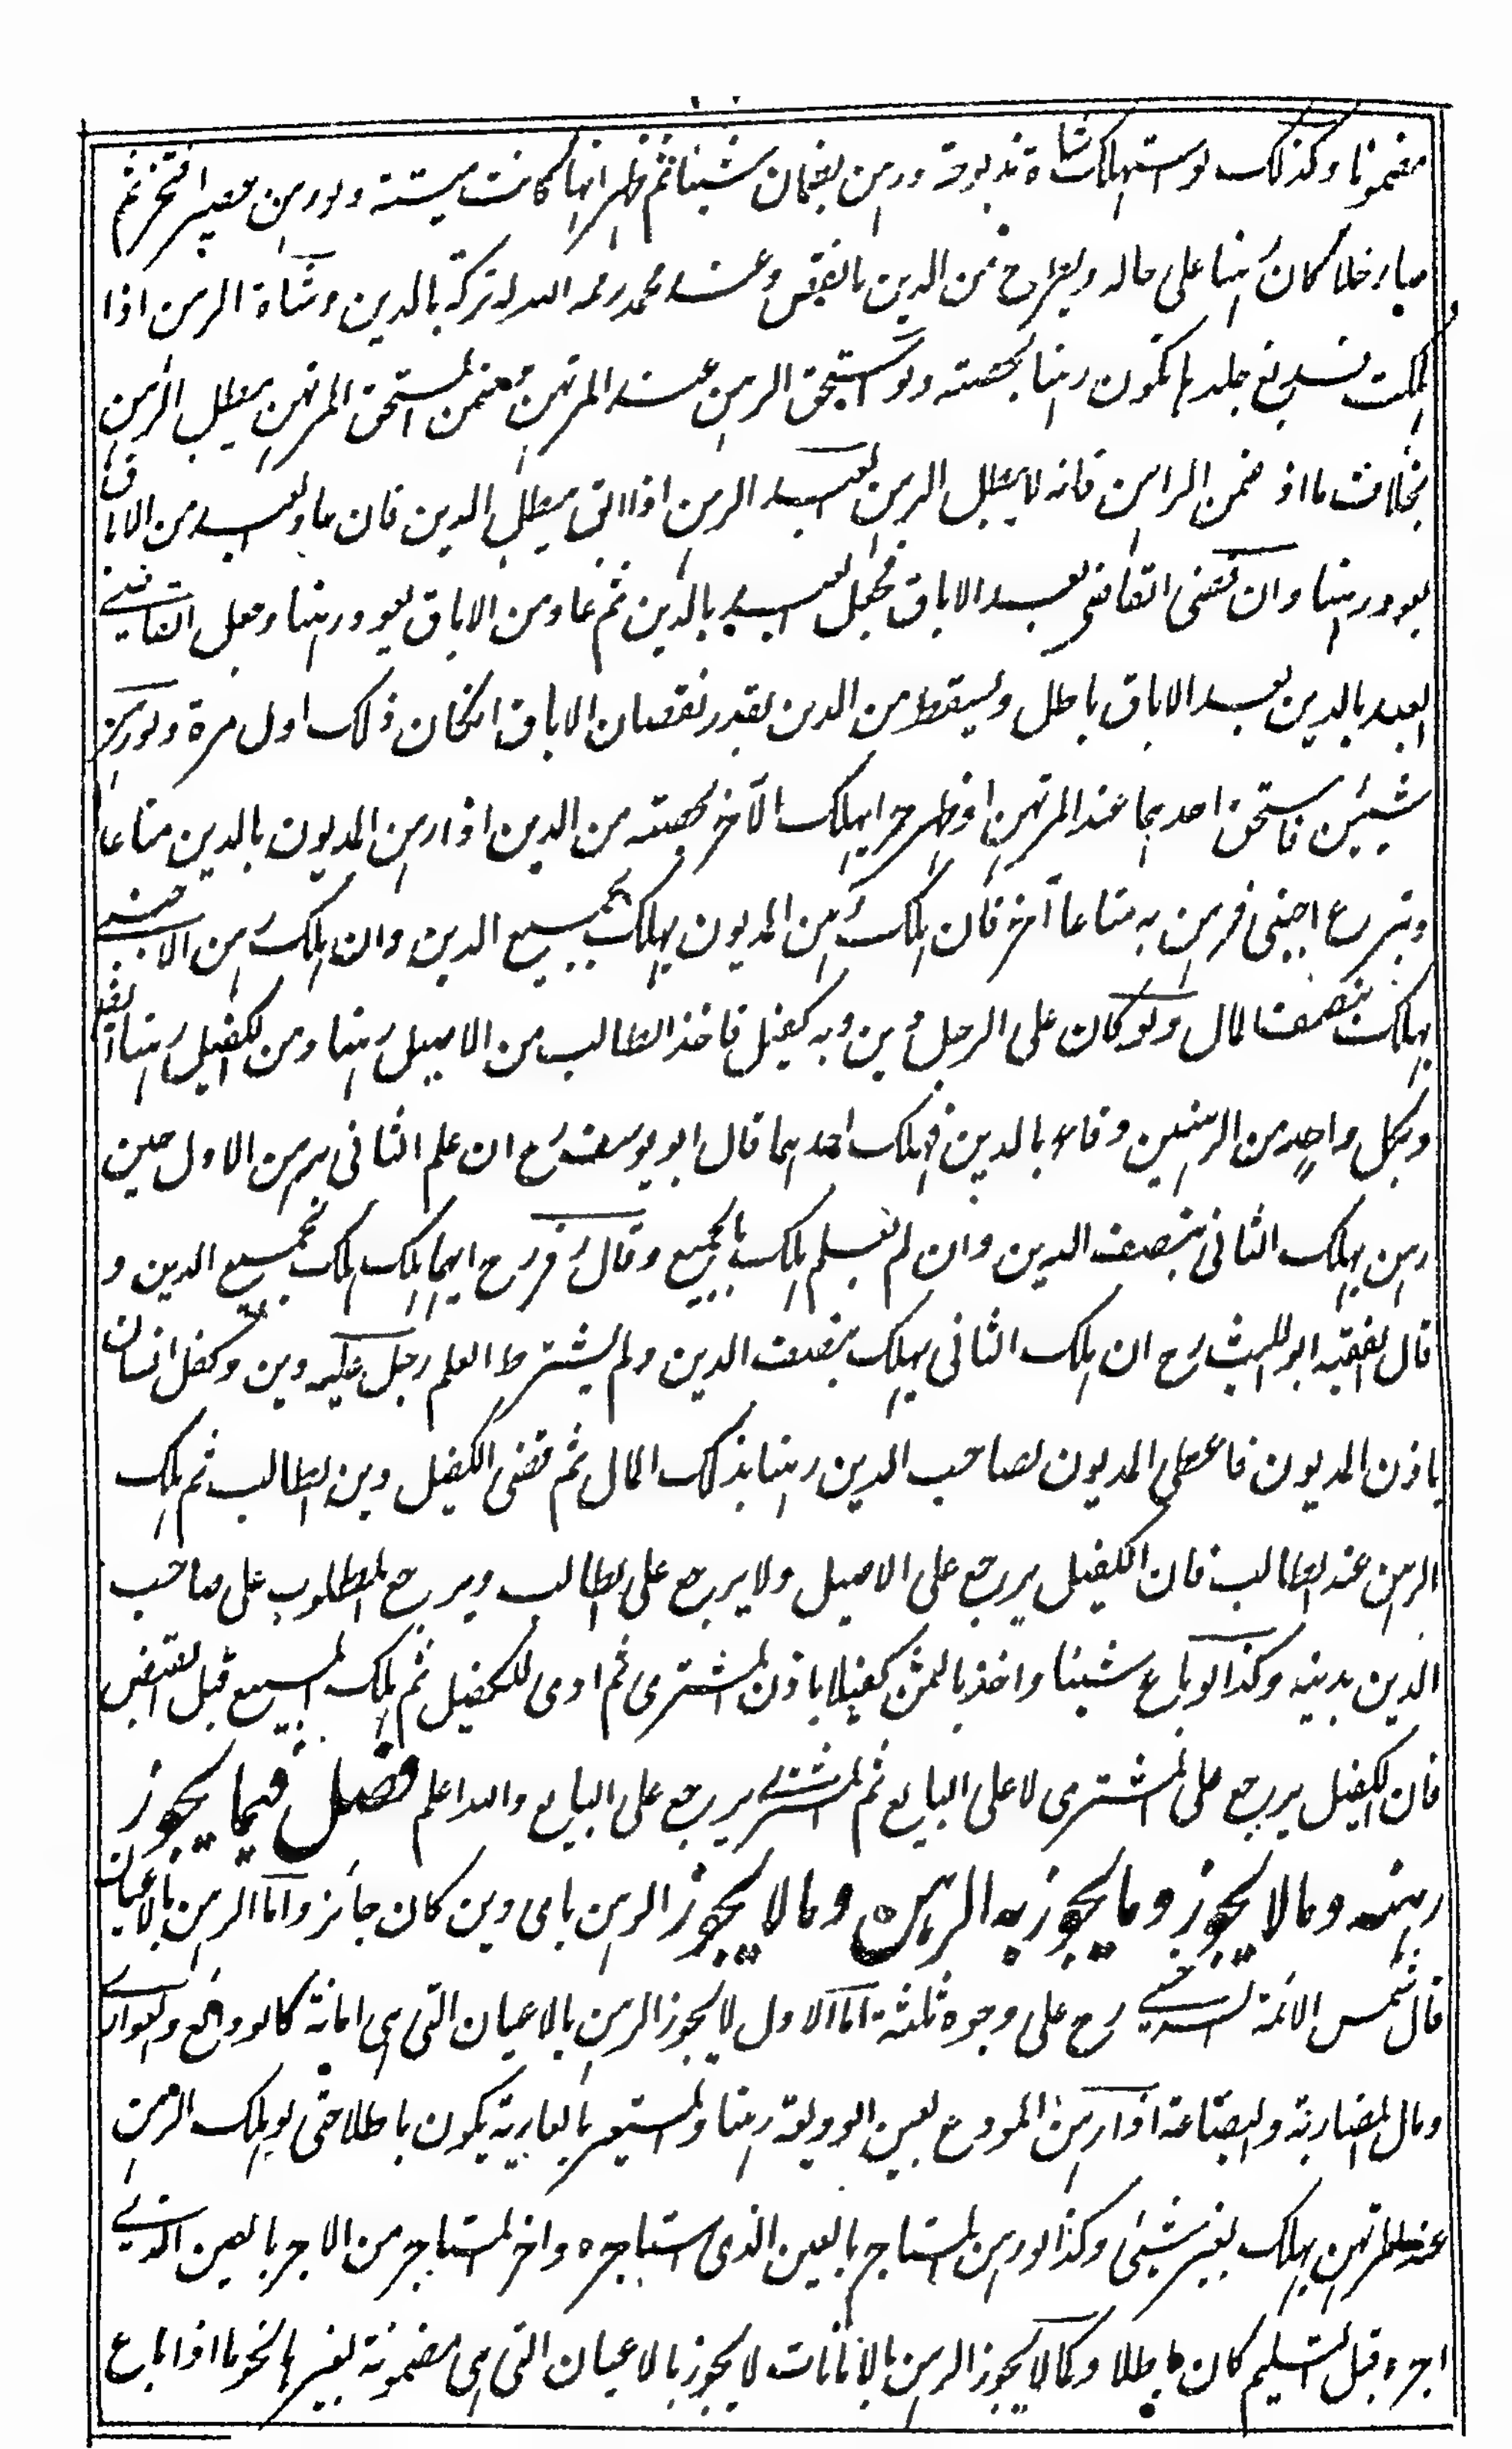 مضمونا وكذلك لو استهلك شاة مذبوحة ورهن بضمان شيئا ثم ظهر انها كانت ميتة ولو رهن عصيرا فتخمر ثم
صار خلا كان رهنا على حاله ويطرح من الدين ما نقص وعند محمد رحمه الله له تركه بالدين وشاة الرهن اذا
هلكت فدبغ جلدها يكون رهنا بحصته ولو استحق الرهن عند المرتهن فضمن المستحق المرتهن يبطل الرهن
بخلاف ما اذ ضمن الراهن فانه لا يبطل الرهن لعبد الرهن اذا ابق يبطل الدين فان عاد العبد من الاباق
يعود رهنا وان قضى القاضى بعد الاباق فجعل العبد بالدين ثم عاد من الاباق يعود رهنا وجعل القاضي
العبد بالدين بعد الاباق باطل ويسقط من الدين بقدر نقصان الاباق انكان ذلك اول مرة ولو رهن
شيئين فاستحق احدهما عند المرتهن او ظهر حرا يهلك الآخر بحصته من الدين اذا رهن المديون بالدين متاعا
وتبرع اجنبى فرهن به متاعا آخر فان هلك رهن المديون يهلك بجميع الدين وان هلك رهن الاجنبي
يهلك بنصف المال ولو كان على الرجل دين وبه كفيل فاخذ الطالب من الاصيل رهنا ومن الكفيل رهنا
وبكل واحد من الرهنين وفاء بالدين فهلك احدهما قال ابو يوسف رح ان علم الثانى برهن الاول حين
رهن يهلك الثانى بنصف الدين وان لم يعلم هلك بالجميع وقال زفر رح ايهما هلك هلك بجميع الدين و
قال الفقيه ابو الليث رح ان هلك الثانى يهلك بنصف الدين ولم يشترط العلم رجل عليه دين وكفل انسان
باذن المديون فاعطى المديون لصاحب الدين رهنا بذلك المال ثم قضى الكفيل دين الطالب ثم هلك
الرهن عند الطالب فان الكفيل يرجع على الاصيل ولا يرجع على الطالب ويرجع المطلوب على صاحب
الدين بدينه وكذا لو باع شيئا واخذ بالثمن كفيلا باذن المشترى ثم ادى الكفيل ثم هلك المبيع قبل القبض
فان الكفيل يرجع على المشترى لا على البايع ثم المشترى يرجع على البايع والله اعلم فصل فيما يجوز
رهنه وما لا يجوز وما يجوز به الرهن وما لا يجوز الرهن باى دين كان جائز واما الرهن بالاعيان
قال شمس الائمة السرخسي رح على وجوه ثلثة اما الاول لا يجوز الرهن بالاعيان التى هى امانة كالودائع والعوارى
ومال المضاربة والبضاعة اذا رهن المودع بعين الوديعة رهنا والمستعير بالعارية يكون باطلا حتى لو هلك الرهن
عند المرتهن يهلك بغير شيئى وكذا لو رهن المستاجر بالعين الذى استاجره واخذ المستاجر من الاجر بالعين الذي
اجره قبل التسليم كان باطلا وكما لا يجوز الرهن بالامانات لا يجوز بالاعيان التى هى مضمونة بغيرها نحو ما اذا باع